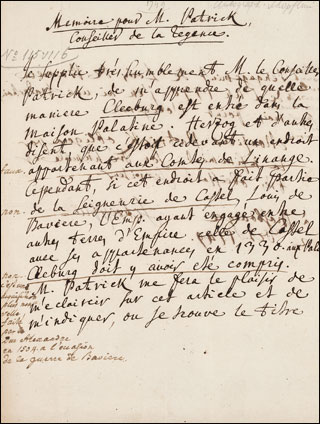 Memoire pour M. Patrick,
Conseiller de la Regence.
Je supplie très humblement M. le Conseiller
Patrick, de m'apprendre de quelle
maniere Cleeburg est entré dans la
maison Palatine. Herzog et d'autres
disent que c'étoit cidevant un endroit
faux. appartenant aux Comtes de Linange.
Cependant, si cet endroit a fait partie
non. de la Seigneurie de Cassel, Louis de
Baviere, l'Emp. ayant engagé entre
autres terres d'Empire celle de Cassel
avec ses appartenances en 1330. aux Pala
Cleburg doit y avoir été compris.
non.
M. Patrick me fera le plaisir de
m'eclaircir sur cet article et de
m'indiquer, ou se trouve le titre
faite
par le
Duc Alexandre
en 1504 a l'occasion
de la guerre de Baviere.